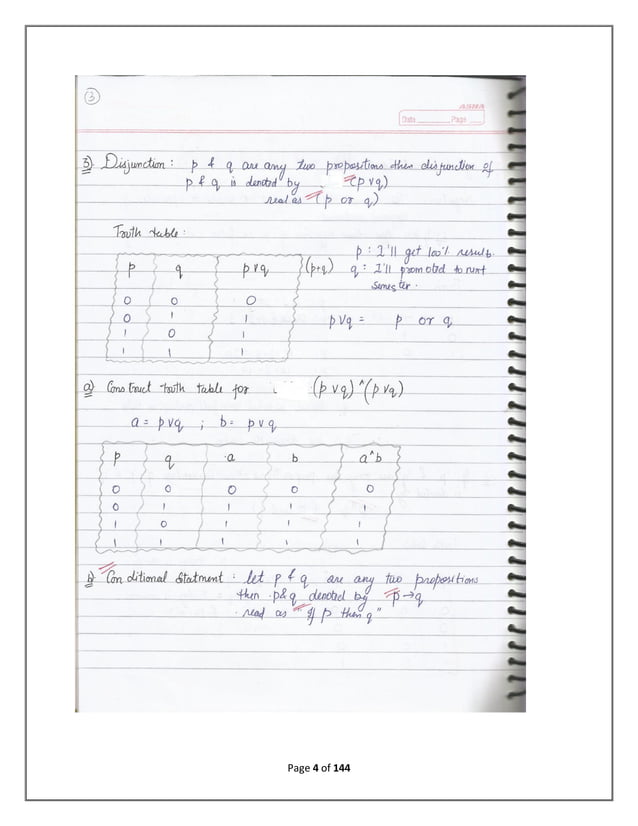 3
ASHA
Date Page
3) Disjunction : p & q are any two propositions then disjunction of
p & q is denoted by (p ∨ q)
read as (p or q)
Truth table :
p : I'll get 100% results.
p q p∨q (p+q) q : I'll promoted to next
semester.
0 0 0
0 1 1 p∨q = p or q
1 0 1
1 1 1
a) Construct truth table for (p ∨ q) ^ (p ∨ q)
a = p∨q ; b = p ∨ q
p q a b a^b
0 0 0 0 0
0 1 1 1 1
1 0 1 1 1
1 1 1 1 1
b) Conditional Statment : let p & q are any two propositions
then p&q denoted by p→q
read as "If p then q"
Page 4 of 144